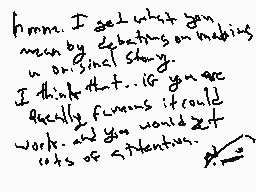 hmmm. I get what you
mean by debating on making
a original story.
I think that.. if you are
really famous it could
work. and you would get
lots of attention.